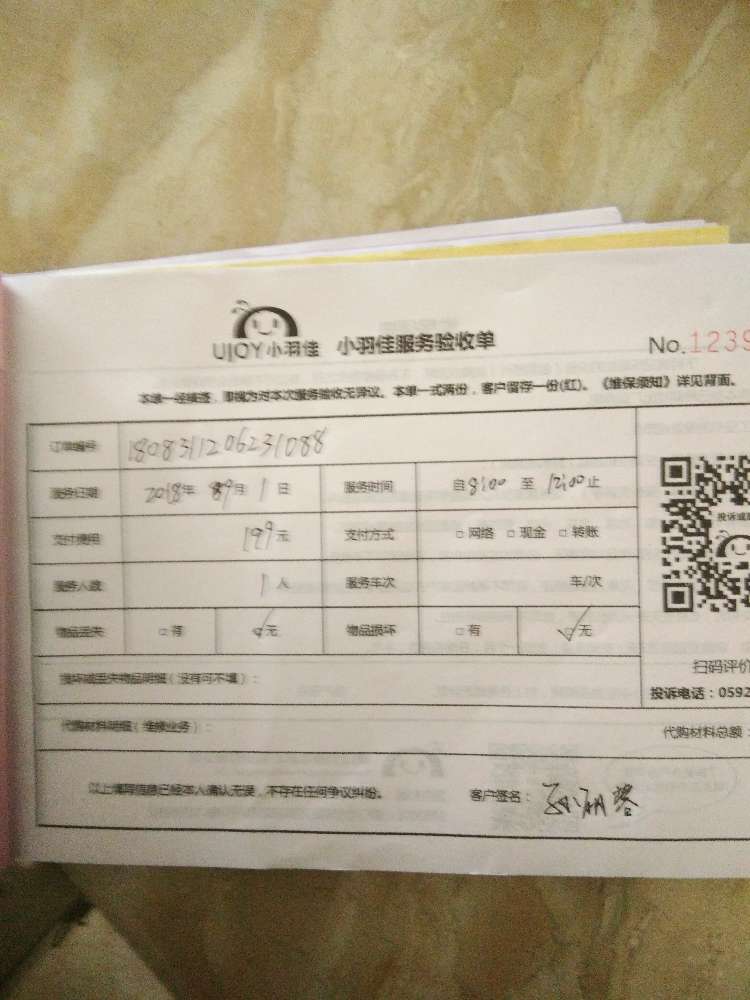 UJOY小羽佳 小羽佳服务验收单 No.1239
本单一经签署，即视为对本次服务验收无异议。本单一式两份，客户留存一份(红)。《维保须知》详见背面。
订单编号 1808311206231088
服务日期 2018年 9月 1日 服务时间 自8:00 至 12:00止
支付费用 199元 支付方式 □网络 □现金 □转账
服务人数 1人 服务车次 车/次
物品丢失 □有 ☑无 物品损坏 □有 ☑无
扫码评价
损坏或丢失物品明细（没有可不填）： 投诉电话：0592
代购材料明细（维修业务）： 代购材料总额：
以上填写信息已经本人确认无误，不存在任何争议纠纷。 客户签名：